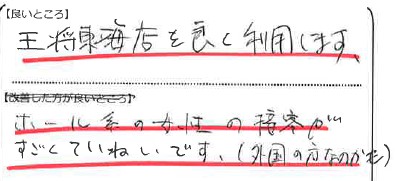 【良いところ】
王将東海店を良く利用します、
【改善した方が良いところ】
ホール系の女性の接客が
すごくていねいです、(外国の方なのかな)